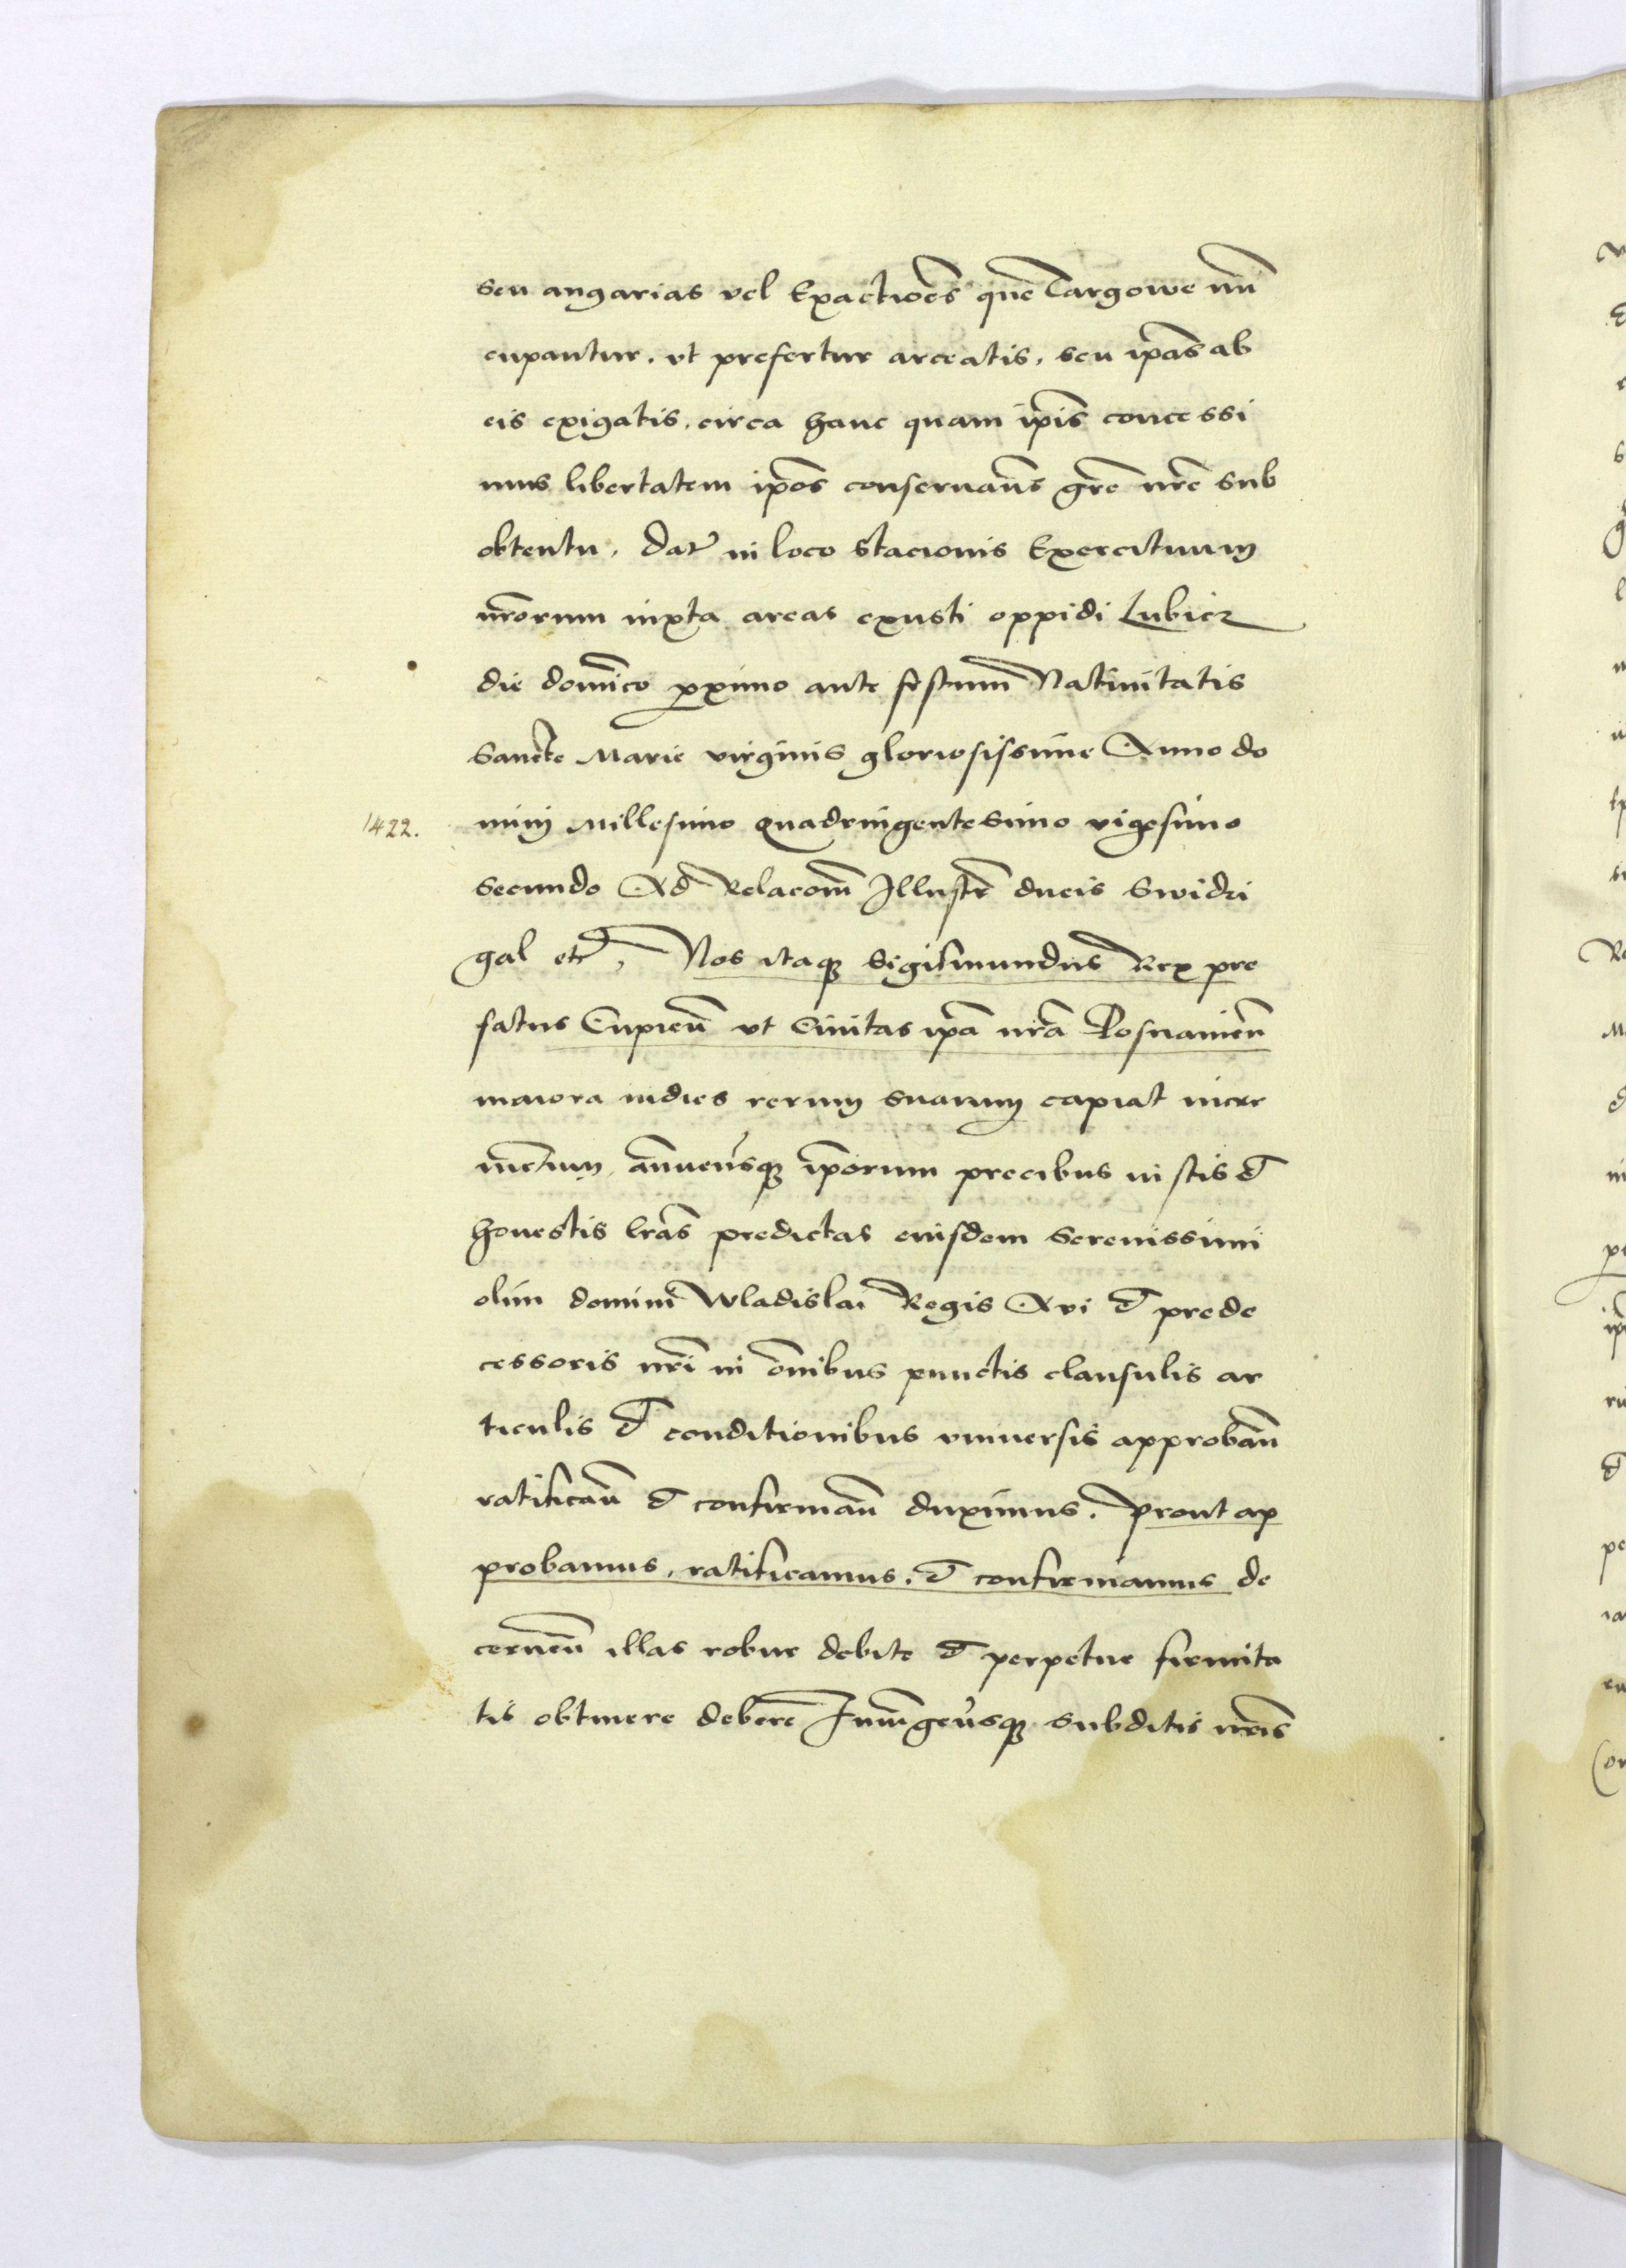 seu angarias vel Exactiões que Targowe nũ
cupantur. vt prefertur arceatis. seu ip̃as ab
eis exigatis. circa hanc quam ip̃is concessi
mus libertatem ip̃os conseruañs gr̃e nr̃e sub
obtentu. Dat̃ in loco stacionis Exercituum
nr̃orum iuxta areas exusti oppidi Lubicz
die domĩco ꝓximo ante festum Natiuitatis
Sancte Marie virginis gloriosissime Anno do
1422. mini Millesimo Quadringentesimo vigesimo
Secundo Ad Relacom̃ Illustr̃ ducis Swidri
gal etc̃, Nos itaqꝫ Sigismundus Rex pre
fatus Cupieñ vt Ciuitas ip̃a nr̃a Posnanieñ
maiora indies rerum suarum capiat incre
mẽtum, annueñsqꝫ ip̃orum precibus iustis et
honestis lr̃as predictas eiusdem Serenissimi
olim domini Wladislai Regis Aui et prede
cessoris nr̃i in õnibus punctis clausulis ar
ticulis et conditionibus vniuersis approbañ
ratificañ et confirmañ duximus. Prout ap
probamus, ratificamus. et confirmamus de
cerneñ illas robur debite et perpetue firmita
tis obtinere deberẽ Iniũgeñsqꝫ subditis nr̃is